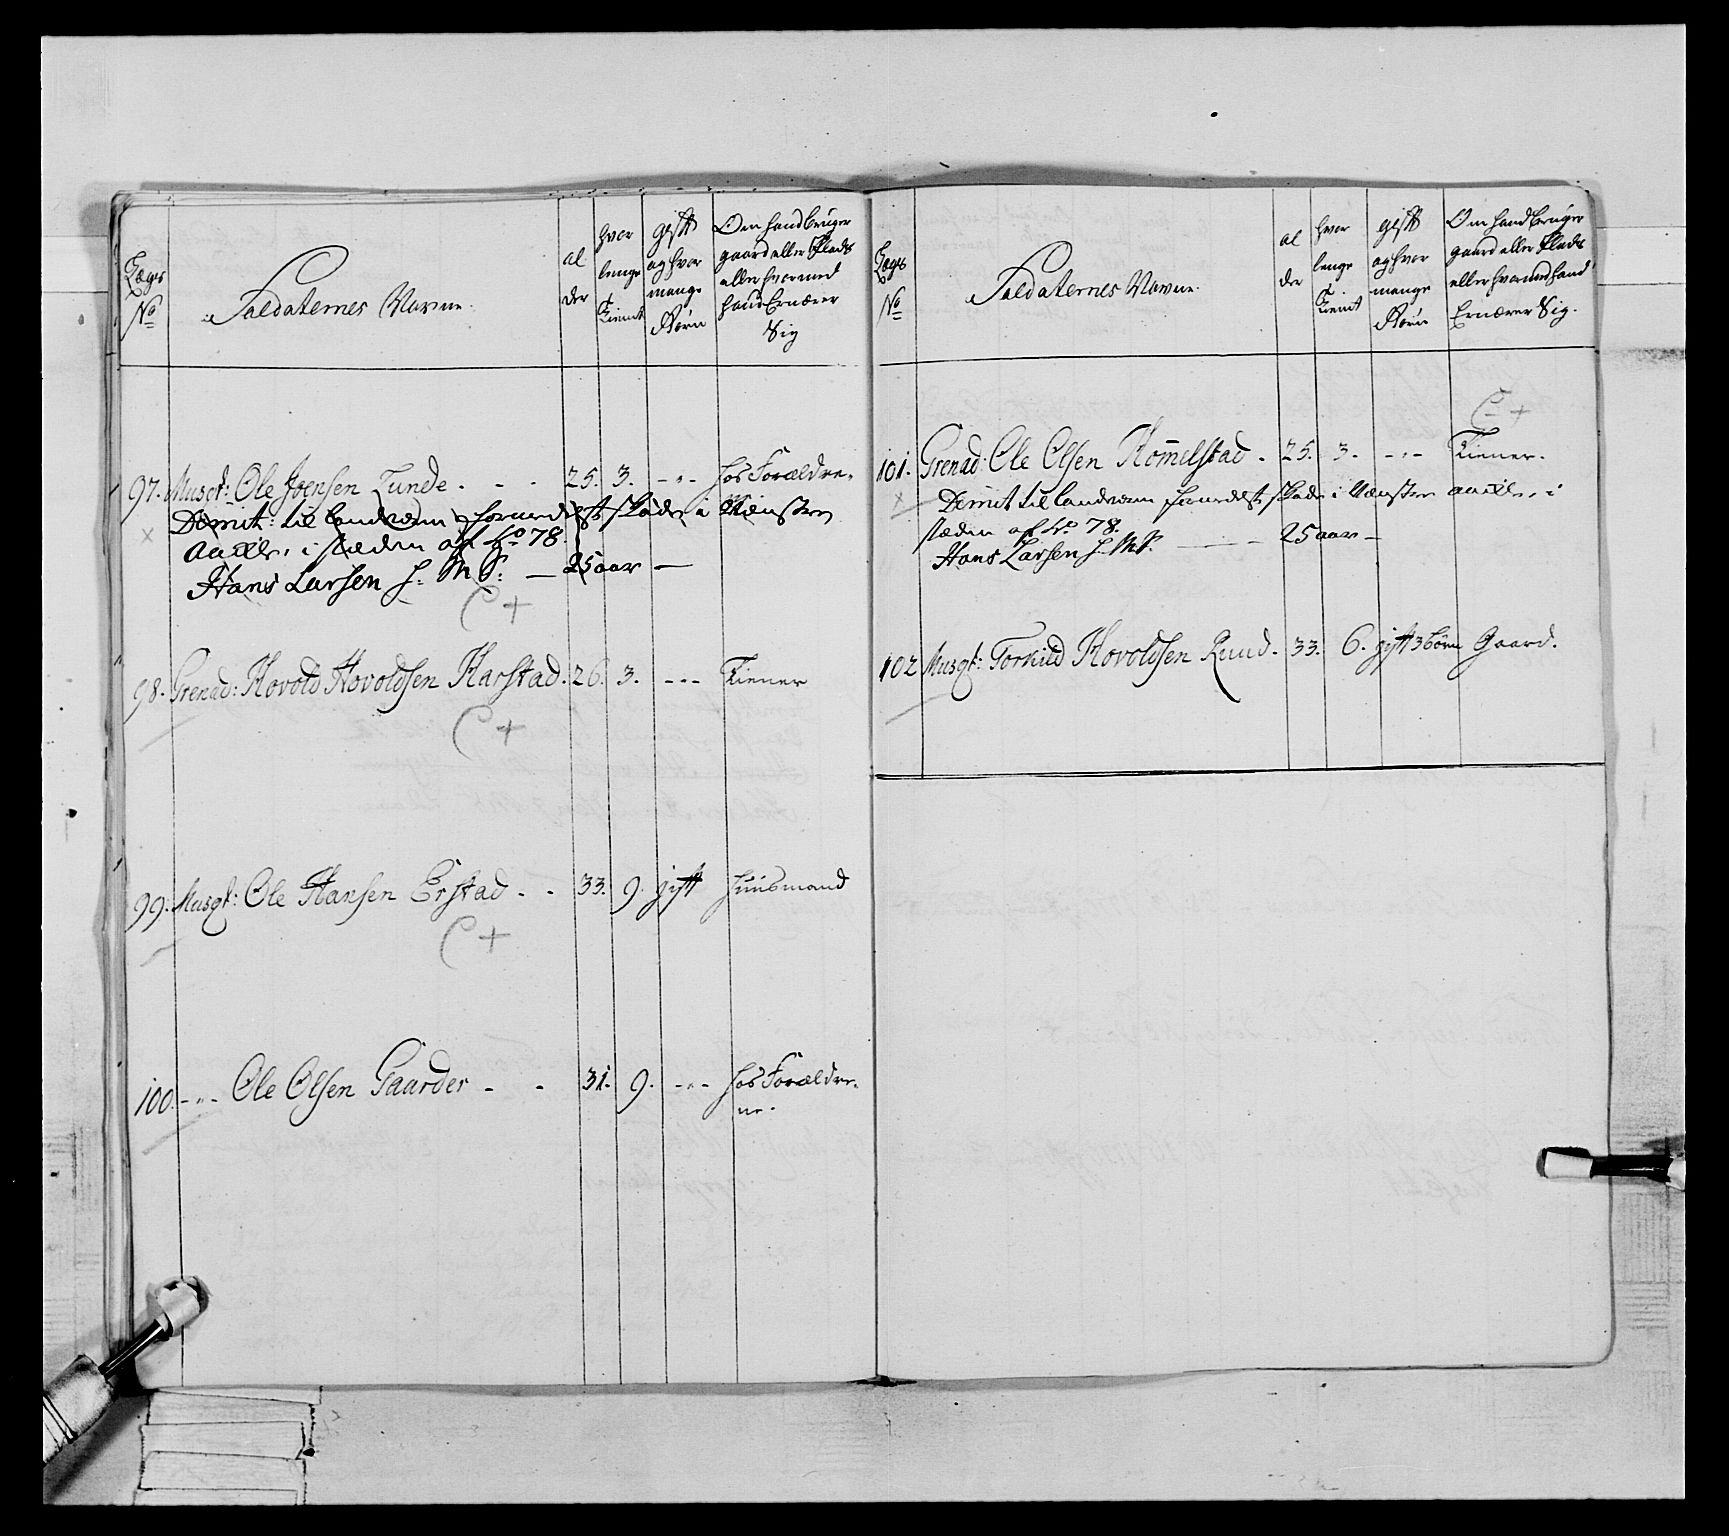 Lægs
No
Soldaternes Navne.
al
der
hvor
lenge
Tient
gift
og hvor
mange
Børn
Om hand bruger
gaard eller Plads
eller hvormed
hand Ernærer
Sig
97. Musqt: Ole Joensen Lunde. - - 25. 3. -"- hos Forældre.
Dimit: til landværn formedelst skade i Venstre
i stæden af No 78.
Hans Larsen S: M P: — 25 aar —
C +
98. Grenad: Hovold Hovoldsen Harstad. 26. 3. -"- Tiener
C +
99. Musqt: Ole Hansen Erstad - - 33. 9. gift Huusmand
C +
100. -"- Ole Olsen Gaarder - - 31. 9. -"- hos Forældre-
ne.
Lægs
No
Soldaternes Navne.
al
der
hvor
lenge
Tient
gift
og hvor
mange
Børn
Om hand bruger
gaard eller Plads
eller hvormed hand
Ernærer Sig.
C +
101. Grenad: Ole Olsen Hom̄elstad. 25. 3. -"- Tiener.
Dimit til landværn formedelst skade i Venstre i
stæden af No 78.
Hans Larsen S: M P. — 25 aar —
102 Musqt: Torkild Hovoldsen Ruud. 33. 6. gift 3 børn Gaard.